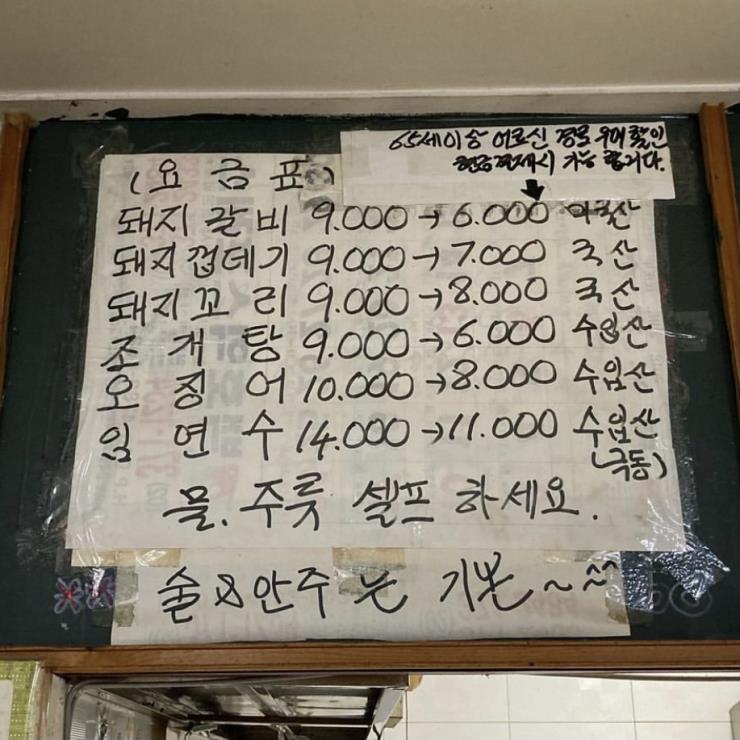 65세이상 어르신 경로 우대 할인
현금결제시 가능 합니다.
(요 금 표)
돼지 갈 비 9.000→6.000 미국산
돼지 껍데기 9.000→7.000 국 산
돼지 꼬 리 9.000→8.000 국 산
조 개 탕 9.000→6.000 수입산
오 징 어 10.000→8.000 수입산
임 연 수 14.000→11.000 수입산
극동)
물. 주륫 셀프 하세요.
술&안주 는 기본~^^